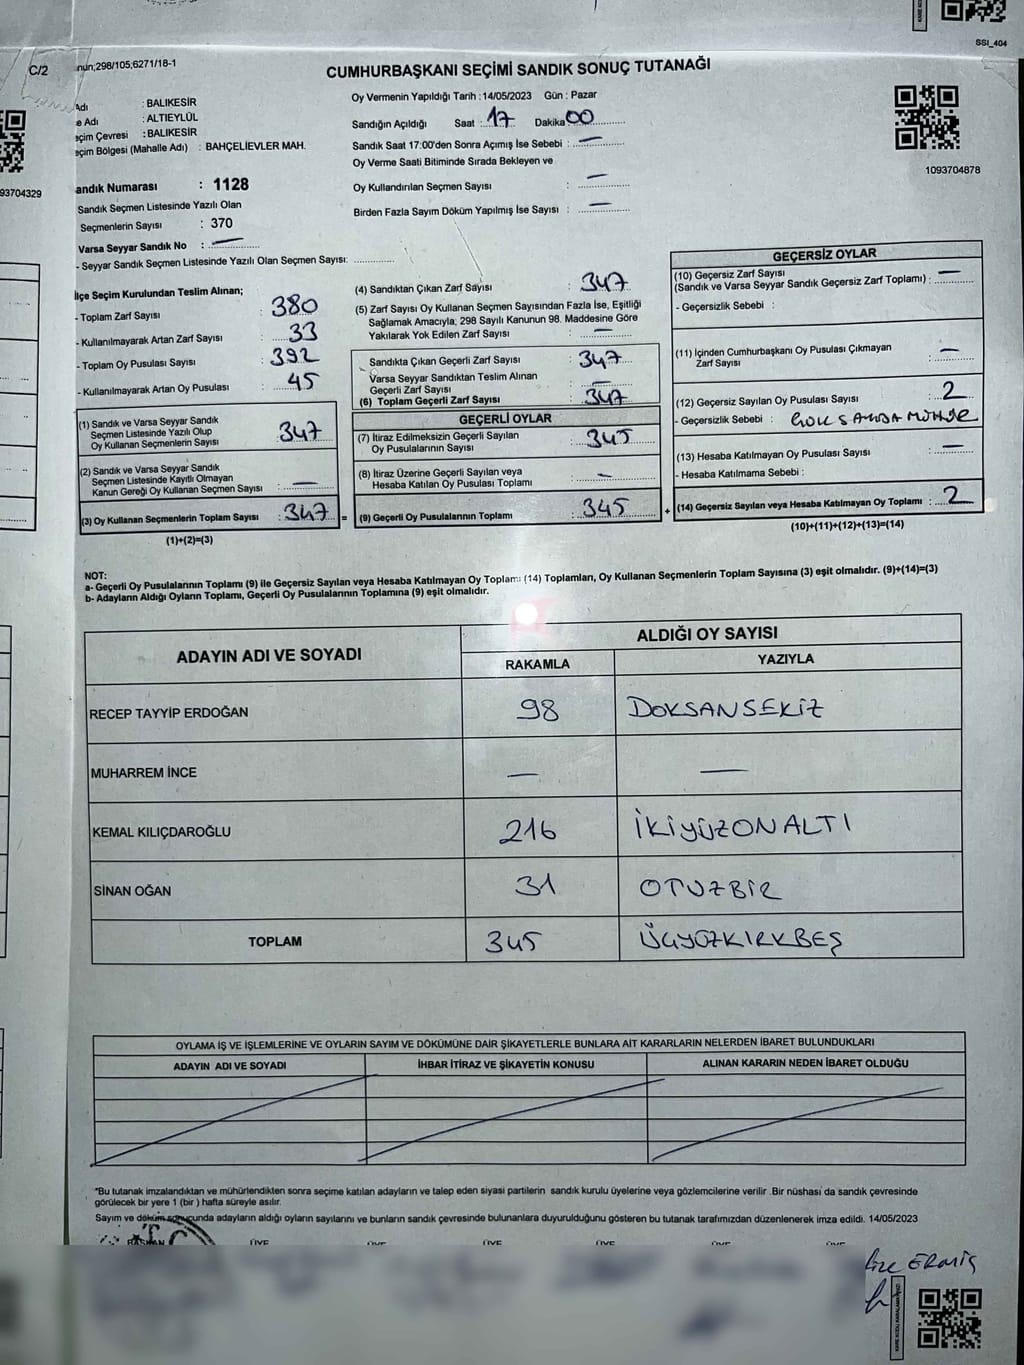 SSI_404
C/2
nun;298/105;6271/18-1
CUMHURBAŞKANI SEÇİMİ SANDIK SONUÇ TUTANAĞI
Adı : BALIKESİR
e Adı : ALTIEYLÜL
eçim Çevresi : BALIKESİR
eçim Bölgesi (Mahalle Adı) : BAHÇELİEVLER MAH.
andık Numarası : 1128
Sandık Seçmen Listesinde Yazılı Olan
Seçmenlerin Sayısı : 370
Varsa Seyyar Sandık No : —
- Seyyar Sandık Seçmen Listesinde Yazılı Olan Seçmen Sayısı:
Oy Vermenin Yapıldığı Tarih : 14/05/2023 Gün : Pazar
Sandığın Açıldığı Saat : 17 Dakika 00
Sandık Saat 17:00'den Sonra Açımış İse Sebebi : —
Oy Verme Saati Bitiminde Sırada Bekleyen ve
Oy Kullandırılan Seçmen Sayısı : —
Birden Fazla Sayım Döküm Yapılmış İse Sayısı : —
1093704878
93704329
İlçe Seçim Kurulundan Teslim Alınan;
- Toplam Zarf Sayısı : 380
- Kullanılmayarak Artan Zarf Sayısı : 33
- Toplam Oy Pusulası Sayısı : 392
- Kullanılmayarak Artan Oy Pusulası : 45
(1) Sandık ve Varsa Seyyar Sandık
Seçmen Listesinde Yazılı Olup
Oy Kullanan Seçmenlerin Sayısı : 347
(2) Sandık ve Varsa Seyyar Sandık
Seçmen Listesinde Kayıtlı Olmayan
Kanun Gereği Oy Kullanan Seçmen Sayısı : —
(3) Oy Kullanan Seçmenlerin Toplam Sayısı : 347 =
(1)+(2)=(3)
(4) Sandıktan Çıkan Zarf Sayısı : 347
(5) Zarf Sayısı Oy Kullanan Seçmen Sayısından Fazla İse, Eşitliği
Sağlamak Amacıyla; 298 Sayılı Kanunun 98. Maddesine Göre
Yakılarak Yok Edilen Zarf Sayısı : —
Sandıkta Çıkan Geçerli Zarf Sayısı : 347
Varsa Seyyar Sandıktan Teslim Alınan
Geçerli Zarf Sayısı : —
(6) Toplam Geçerli Zarf Sayısı : 347
GEÇERLİ OYLAR
(7) İtiraz Edilmeksizin Geçerli Sayılan
Oy Pusulalarının Sayısı : 345
(8) İtiraz Üzerine Geçerli Sayılan veya
Hesaba Katılan Oy Pusulası Toplamı : —
(9) Geçerli Oy Pusulalarının Toplamı : 345 +
GEÇERSİZ OYLAR
(10) Geçersiz Zarf Sayısı
(Sandık ve Varsa Seyyar Sandık Geçersiz Zarf Toplamı) : —
- Geçersizlik Sebebi :
(11) İçinden Cumhurbaşkanı Oy Pusulası Çıkmayan
Zarf Sayısı : —
(12) Geçersiz Sayılan Oy Pusulası Sayısı : 2
- Geçersizlik Sebebi :
(13) Hesaba Katılmayan Oy Pusulası Sayısı : —
- Hesaba Katılmama Sebebi :
(14) Geçersiz Sayılan veya Hesaba Katılmayan Oy Toplamı : 2
(10)+(11)+(12)+(13)=(14)
NOT:
a- Geçerli Oy Pusulalarının Toplamı (9) ile Geçersiz Sayılan veya Hesaba Katılmayan Oy Toplamı (14) Toplamları, Oy Kullanan Seçmenlerin Toplam Sayısına (3) eşit olmalıdır. (9)+(14)=(3)
b- Adayların Aldığı Oyların Toplamı, Geçerli Oy Pusulalarının Toplamına (9) eşit olmalıdır.
ADAYIN ADI VE SOYADI
ALDIĞI OY SAYISI
RAKAMLA YAZIYLA
RECEP TAYYİP ERDOĞAN 98 DOKSANSEKİZ
MUHARREM İNCE — —
KEMAL KILIÇDAROĞLU 216 İKİYÜZONALTI
SİNAN OĞAN 31 OTUZBİR
TOPLAM 345 ÜÇYÜZKIRKBEŞ
OYLAMA İŞ VE İŞLEMLERİNE VE OYLARIN SAYIM VE DÖKÜMÜNE DAİR ŞİKAYETLERLE BUNLARA AİT KARARLARIN NELERDEN İBARET BULUNDUKLARI
ADAYIN ADI VE SOYADI İHBAR İTİRAZ VE ŞİKAYETİN KONUSU ALINAN KARARIN NEDEN İBARET OLDUĞU
"Bu tutanak imzalandıktan ve mühürlendikten sonra seçime katılan adayların ve talep eden siyasi partilerin sandık kurulu üyelerine veya gözlemcilerine verilir .Bir nüshası da sandık çevresinde
görülecek bir yere 1 (bir ) hafta süreyle asılır.
Sayım ve döküm sonucunda adayların aldığı oyların sayılarını ve bunların sandık çevresinde bulunanlara duyurulduğunu gösteren bu tutanak tarafımızdan düzenlenerek imza edildi. 14/05/2023
BAŞKAN ÜYE ÜYE ÜYE ÜYE ÜYE ÜYE